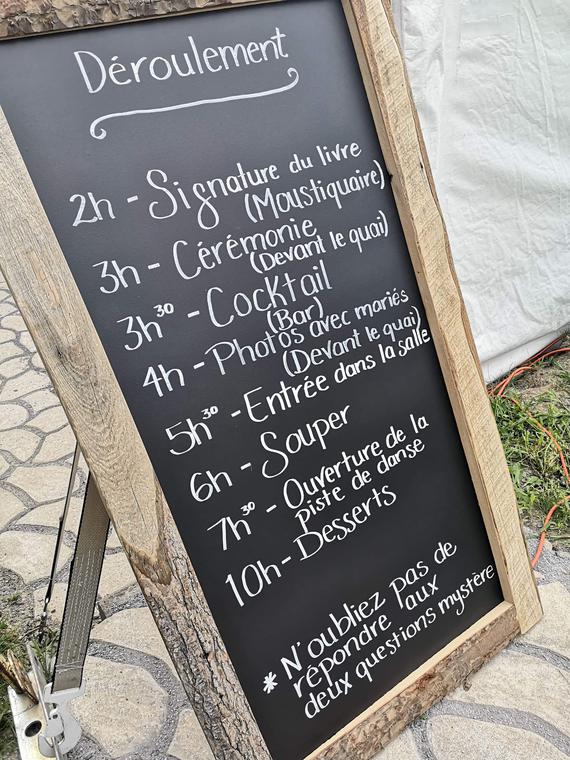 Déroulement
2h - Signature du livre
(Moustiquaire)
3h - Cérémonie
(Devant le quai)
3h30 - Cocktail
(Bar)
4h - Photos avec mariés
(Devant le quai)
5h30 - Entrée dans la salle
6h - Souper
7h30 - Ouverture de la
piste de danse
10h - Desserts
* N'oubliez pas de
répondre aux
deux questions mystère